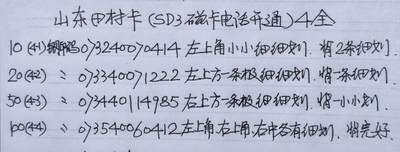 山东田村卡(SD3磁卡电话开通)4全
10(4-1)编码073240070414左上角小小细细划.背2条细划.
20(4-2) 〃 073340071222左上方一条极细细划.背一条细划.
50(4-3) 〃 073440114985右上方一条极细细划.背一小小划.
100(4-4) 〃 073540060412左上角.右上角.右中各有细划.背完好.